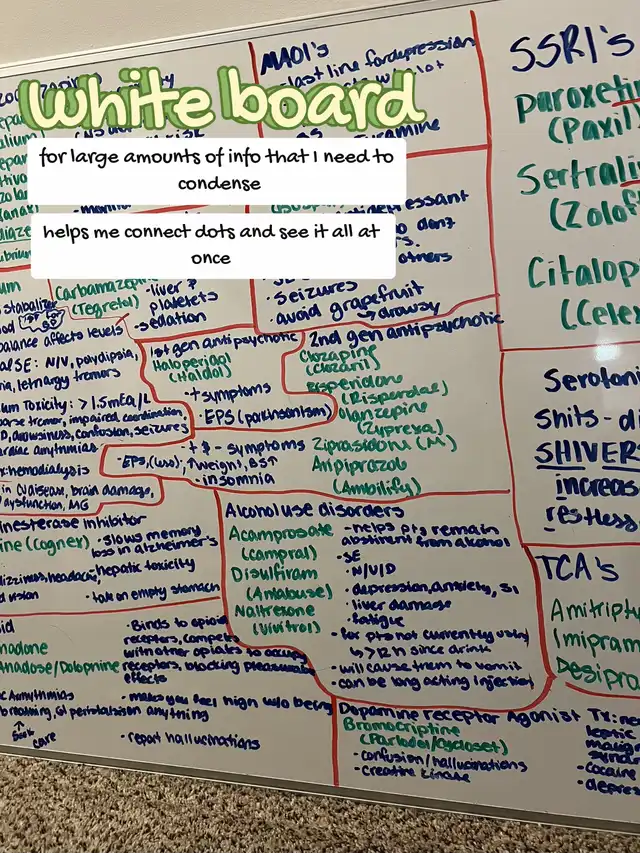 White board
for large amounts of info that I need to
condense
helps me connect dots and see it all at
once
MAOI's
last line for depression
SSRI's
Paroxetin
(Paxil)
Sertrali
(Zolof
Citalop
(Celex
antidepressant
others
seizures
avoid grapefruit
drowsy
Carbamazepin
(Tegretol)
-liver &
platelets
-sedation
stabalizer
balance affects levels
SE: N/V, polydipsia,
lethargy tremors
Toxicity: > 1.5mEq/L
tremor, impaired coordination
drowsiness, confusion, seizures
arythmias
hemodialysis
disease, brain damage,
dysfunction, MG
1st gen antipsychotic
Haloperidol
(Haldol)
-+symptoms
-EPS (parkinsonism)
2nd gen antipsychotic
Clozapine
(Clozaril)
Risperidone
(Risperdal)
Olanzapine
(Zyprexa)
Ziprasidone (M)
Aripiprazole
(Ambilify)
-+ & - symptoms
-EPS (less), ↑weight, BS↑
-insomnia
Serotoni
Shits-di
SHIVER
increas
restless
inesterase inhibitor
ine (Cognex)
-slows memory
loss in alzheimer's
dizziness, headache,
-hepatic toxicity
vision
-take on empty stomach
Alcohol use disorders
Acamprosate
(campral)
Disulfiram
(Antabuse)
Naltrexone
(Vivitrol)
-helps pts remain
abstinent from alcohol
-SE
• N/V/D
• depression, anxiety, SI
• liver damage
• fatigue
-for pts not currently using
↳ >12h since drink
-will cause them to vomit
-can be long acting injection
TCA's
Amitript
Imipram
Desipra
/Dolophine
-Binds to opioid
receptors, compete
with other opiates to occupy
receptors, blocking pleasurable
effects
-makes you feel high w/o being
on anything
arythmias
breathing, GI peristalsis
care
-report hallucinations
Dopamine receptor Agonist
Bromocriptine
(Parlodel/Cycloset)
-confusion/hallucinations
-creatine kinase
Tx: ne
leptic
malign
syndr
-cocaine
-depres